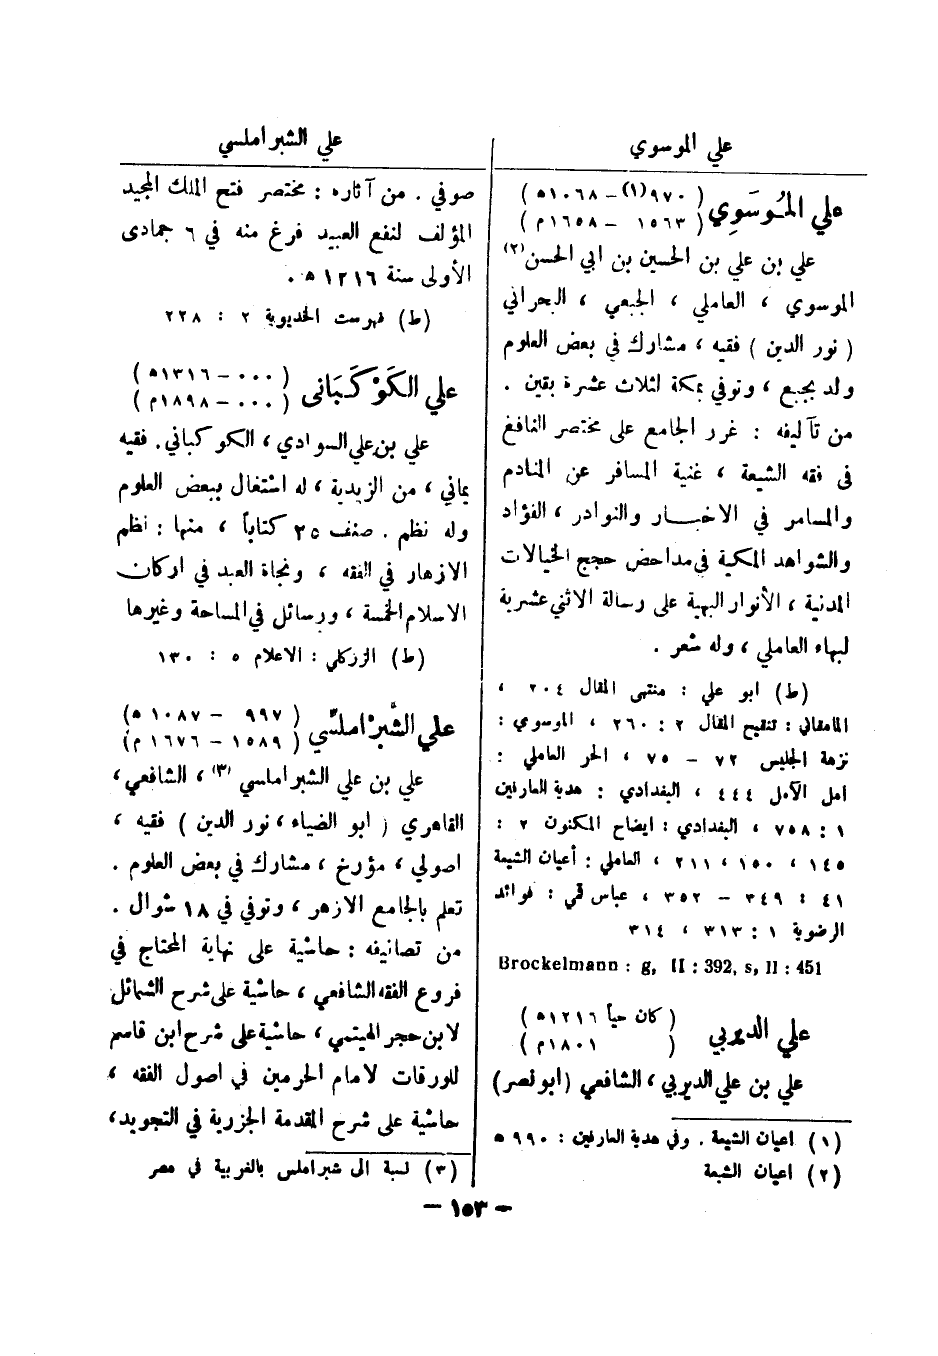 علي الموسوي
علي المُوسَوِي ( ٩٧٠ (١) – ١٠٦٨ ه )
( ١٥٦٣ – ١٦٥٨ م )
علي بن علي بن الحسين بن ابي الحسن (٢)
الموسوي ، العاملي ، الجبعي ، البحراني
( نور الدين ) فقيه ، مشارك في بعض العلوم
ولد بجبع ، وتوفي بمكة لثلاث عشرة بقين .
من تآليفه : غرر الجامع على مختصر النافع
في فقه الشيعة ، غنية المسافر عن المنادم
والمسامر في الاخبار والنوادر ، الفؤاد
والشواهد المكية في مداحض حجج الخيالات
المدنية ، الأنوار البهية على رسالة الاثني عشرية
لبهاء العاملي ، وله شعر .
(ط) ابو علي : منتهى المقال ٢٠٤ ،
المامقاني : تنقيح المقال ٢ : ٢٦٠ ، الموسوي :
نزهة الجليس ٧٢ – ٧٥ ، الحر العاملي :
امل الآمل ٤٤٤ ، البغدادي : هدية العارفين
١ : ٧٥٨ ، البغدادي : ايضاح المكنون ٢ :
١٤٥ ، ١٥٠ ، ٢١١ ، العاملي : أعيان الشيعة
٤١ : ٣٤٩ – ٣٥٢ ، عباس قمي : فوائد
الرضوية ١ : ٣١٣ ، ٣١٤
Brockelmann : g, II : 392, s, II : 451
علي الديربي ( كان حياً ١٢١٦ ه )
( ١٨٠١ م )
علي بن علي الديربي ، الشافعي (ابو نصر)
(١) اعيان الشيعة . وفي هدية العارفين : ٩٩٠ ه
(٢) اعيان الشيعة
علي الشبراملسي
صوفي . من آثاره : مختصر فتح الملك المجيد
المؤلف لنفع العبيد فرغ منه في ٦ جمادى
الأولى سنة ١٢١٦ ه .
(ط) فهرست الخديوية ٢ : ٢٢٨
علي الكَوْكَبَانى ( ٠٠٠ – ١٣١٦ ه )
( ٠٠٠ – ١٨٩٨ م )
علي بن علي السوادي ، الكوكباني . فقيه
يماني ، من الزيدية ، له اشتغال ببعض العلوم
وله نظم . صنف ٢٥ كتاباً ، منها : نظم
الازهار في الفقه ، ونجاة العبد في اركان
الاسلام الخمسة ، ورسائل في المساحة وغيرها
(ط) الزركلي : الاعلام ٥ : ١٣٠
علي الشَّبْرَاملِّسي ( ٩٩٧ – ١٠٨٧ ه )
( ١٥٨٩ – ١٦٧٦ م )
علي بن علي الشبراملسي (٣) ، الشافعي ،
القاهري ( ابو الضياء ، نور الدين ) فقيه ،
اصولي ، مؤرخ ، مشارك في بعض العلوم .
تعلم بالجامع الازهر ، وتوفي في ١٨ شوال .
من تصانيفه : حاشية على نهاية المحتاج في
فروع الفقه الشافعي ، حاشية على شرح الشمائل
لابن حجر الهيتمي ، حاشية على شرح ابن قاسم
للورقات لامام الحرمين في اصول الفقه ،
حاشية على شرح المقدمة الجزرية في التجويد ،
(٣) نسبة الى شبراملس بالغربية في مصر
– ١٥٣ –